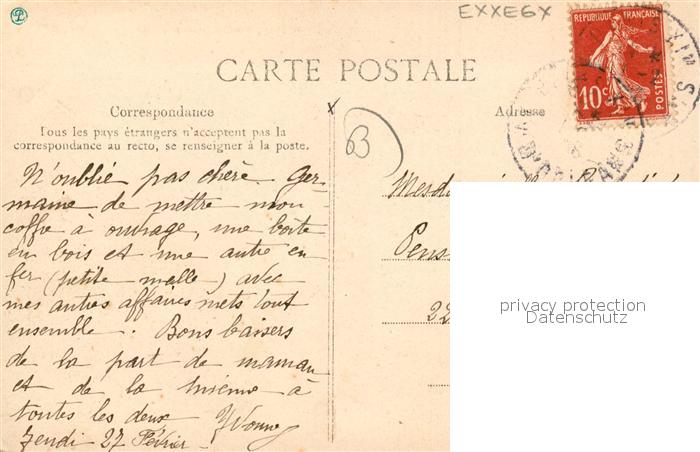 EXXEGX
RÉPUBLIQUE FRANÇAISE
10c
POSTES
CARTE POSTALE
Correspondance
Tous les pays étrangers n'acceptent pas la
correspondance au recto, se renseigner à la poste.
N'oublie pas chère Ger-
maine de mettre mon
coffre à ouvrage, une boîte
en bois et une autre en
fer (petite malle) avec
mes autres affaires mets tout
ensemble. Bons baisers
de la part de maman
et de la mienne à
toutes les deux Yvonne
Jeudi 27 Février
Adresse
B
Pens
22
privacy protection
Datenschutz